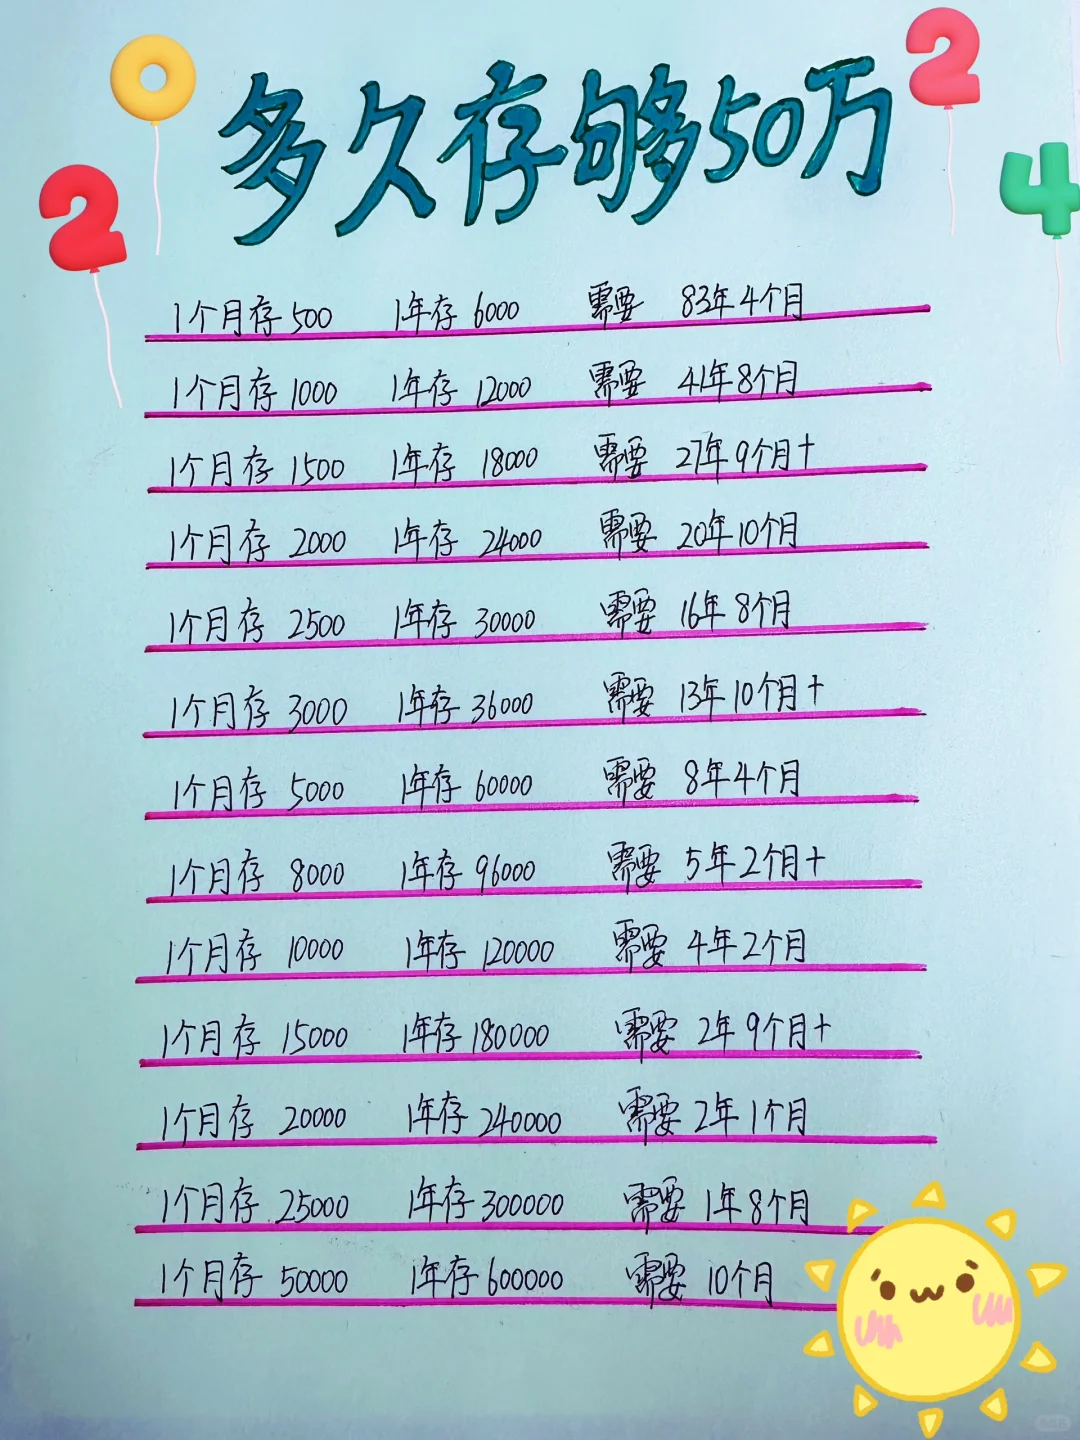 2024
多久存够50万
1个月存 500 1年存 6000 需要 83年4个月
1个月存 1000 1年存 12000 需要 41年8个月
1个月存 1500 1年存 18000 需要 27年9个月+
1个月存 2000 1年存 24000 需要 20年10个月
1个月存 2500 1年存 30000 需要 16年8个月
1个月存 3000 1年存 36000 需要 13年10个月+
1个月存 5000 1年存 60000 需要 8年4个月
1个月存 8000 1年存 96000 需要 5年2个月+
1个月存 10000 1年存 120000 需要 4年2个月
1个月存 15000 1年存 180000 需要 2年9个月+
1个月存 20000 1年存 240000 需要 2年1个月
1个月存 25000 1年存 300000 需要 1年8个月
1个月存 50000 1年存 600000 需要 10个月